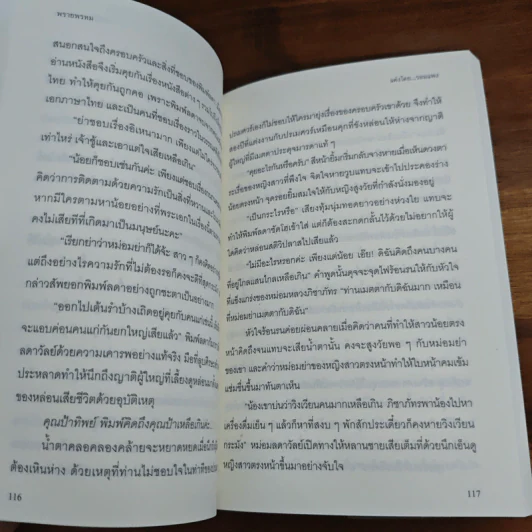 พรายพรหม
สนอกสนใจถึงครอบครัวและสิ่งที่ชอบของพิมพ์
อ่านหนังสือจึงเริ่มคุยกันเรื่องหนังสือต่าง ๆ
ไทย ทำให้คุยกันถูกคอ เพราะพิมพ์ลดา
เอกภาษาไทย และเป็นคนที่ชอบเรื่องราวโบราณ
“ย่าชอบเรื่องอิเหนามาก เพียงแต่ไม่
เท่าไหร่ เจ้าชู้และเอาแต่ใจเสียเหลือเกิน”
“น้อยก็ชอบเช่นกันค่ะ เพียงแต่ชอบเรื่อง
คิดว่าการติดตามด้วยความรักเป็นสิ่งที่หวาน
หากมีใครตามหาน้อยอย่างที่พระเอกในเรื่อง
คงไม่เสียทีที่เกิดมาเป็นมนุษย์นะคะ”
“เรียกย่าว่าหม่อมย่าก็ได้จ้ะ สาว ๆ
แต่ถึงอย่างไรความรักที่ไม่ต้องรอก็คงจะดีที่สุด
กล่าวสัพยอกพิมพ์ลดาอย่างถูกชะตาเป็นอย่างมาก
“ออกไปเต้นรำบ้างเถิดอยู่คุยกับคนแก่เช่นนี้
จะแอบค่อนคนแก่กันยกใหญ่เสียแล้ว” พิมพ์ลดา
ลดาวัลย์ด้วยความเคารพอย่างแท้จริง มือที่
ประหลาดทำให้นึกถึงญาติผู้ใหญ่ที่เลี้ยงดูหล่อนมา
ของหล่อนเสียชีวิตด้วยอุบัติเหตุ
คุณป้าทิพย์ พิมพ์คิดถึงคุณป้าเหลือเกินค่ะ..
น้ำตาคลอคลองคล้ายจะหยาดหยดเมื่อ
ต้องเหินห่าง ด้วยเหตุที่ท่านไม่ชอบใจในท่าที
116
แต่งโดย...รอมแพง
ปรเมศวร์เองก็ไม่ชอบให้ใครมายุ่งเรื่องของครอบครัวเขาด้วย จึงทำให้
สองปีที่แต่งงานกับปรเมศวร์เหมือนคุกที่ขังหล่อนให้ห่างจากญาติ
ผู้ใหญ่ที่มีเมตตาประดุจมารดาแท้ ๆ
“คุยอะไรกันหรือครับ” สีหน้ายิ้มกริ่มกลับจางหายเมื่อเห็นดวงตา
ระเรื่อของหญิงสาวที่พึงใจ จิตใจหายวูบแทบจะเข้าไปประคองร่าง
น้อยตรงหน้า จุดรอยยิ้มสมใจให้กับหญิงสูงวัยที่กำลังนั่งมองอยู่
“เป็นกะไรหรือ” เสียงทุ้มนุ่มทอดยาวอย่างห่วงใย แทบจะ
ทำให้พิมพ์ลดาซัดโฮเข้าใส่ แต่ก็ต้องสะกดกลั้นไว้ด้วยไม่อยากให้ผู้
ใดคิดว่าหล่อนสติวิปลาสไปเสียแล้ว
“ไม่มีอะไรหรอกค่ะ เพียงแต่น้อย เอ้ย! ดิฉันคิดถึงคนบางคน
ที่อยู่ไกลแสนไกลเหลือเกิน” คำพูดนั้นดุจจะจุดไฟร้อนรนให้กับหัวใจ
ที่แข็งแกร่งของหม่อมหลวงภิชาภัทร “ท่านเมตตากับดิฉันมาก เหมือน
ที่หม่อมเมตตากับดิฉัน”
หัวใจร้อนรนค่อยผ่อนคลายเมื่อคิดว่าคนที่ทำให้สาวน้อยตรง
หน้าคิดถึงจนแทบจะเสียน้ำตานั้น คงจะสูงวัยพอ ๆ กับหม่อมย่า
ของเขา และคำว่าหม่อมย่าของหญิงสาวตรงหน้าทำให้ใบหน้าคมเข้ม
แช่มชื่นขึ้นมาทันตาเห็น
“น้องเขาบ่นว่าวิงเวียนคนมากเหลือเกิน ภิชาภัทรพาน้องไปหา
เครื่องดื่มเย็น ๆ แล้วก็หาที่สงบ ๆ พักสักประเดี๋ยวก็คงหายวิงเวียน
กระมัง” หม่อมลดาวัลย์เปิดทางให้หลานชายเสียเต็มที่ด้วยนึกเอ็นดู
หญิงสาวตรงหน้าขึ้นมาอย่างจับใจ
117